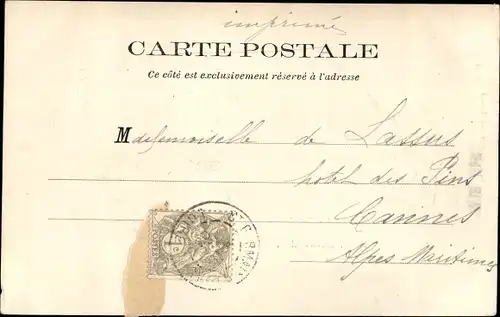 imprimé
CARTE POSTALE
Ce côté est exclusivement réservé à l'adresse
Mademoiselle de Lassus
hotel des Pins
Cannes
Alpes Maritimes